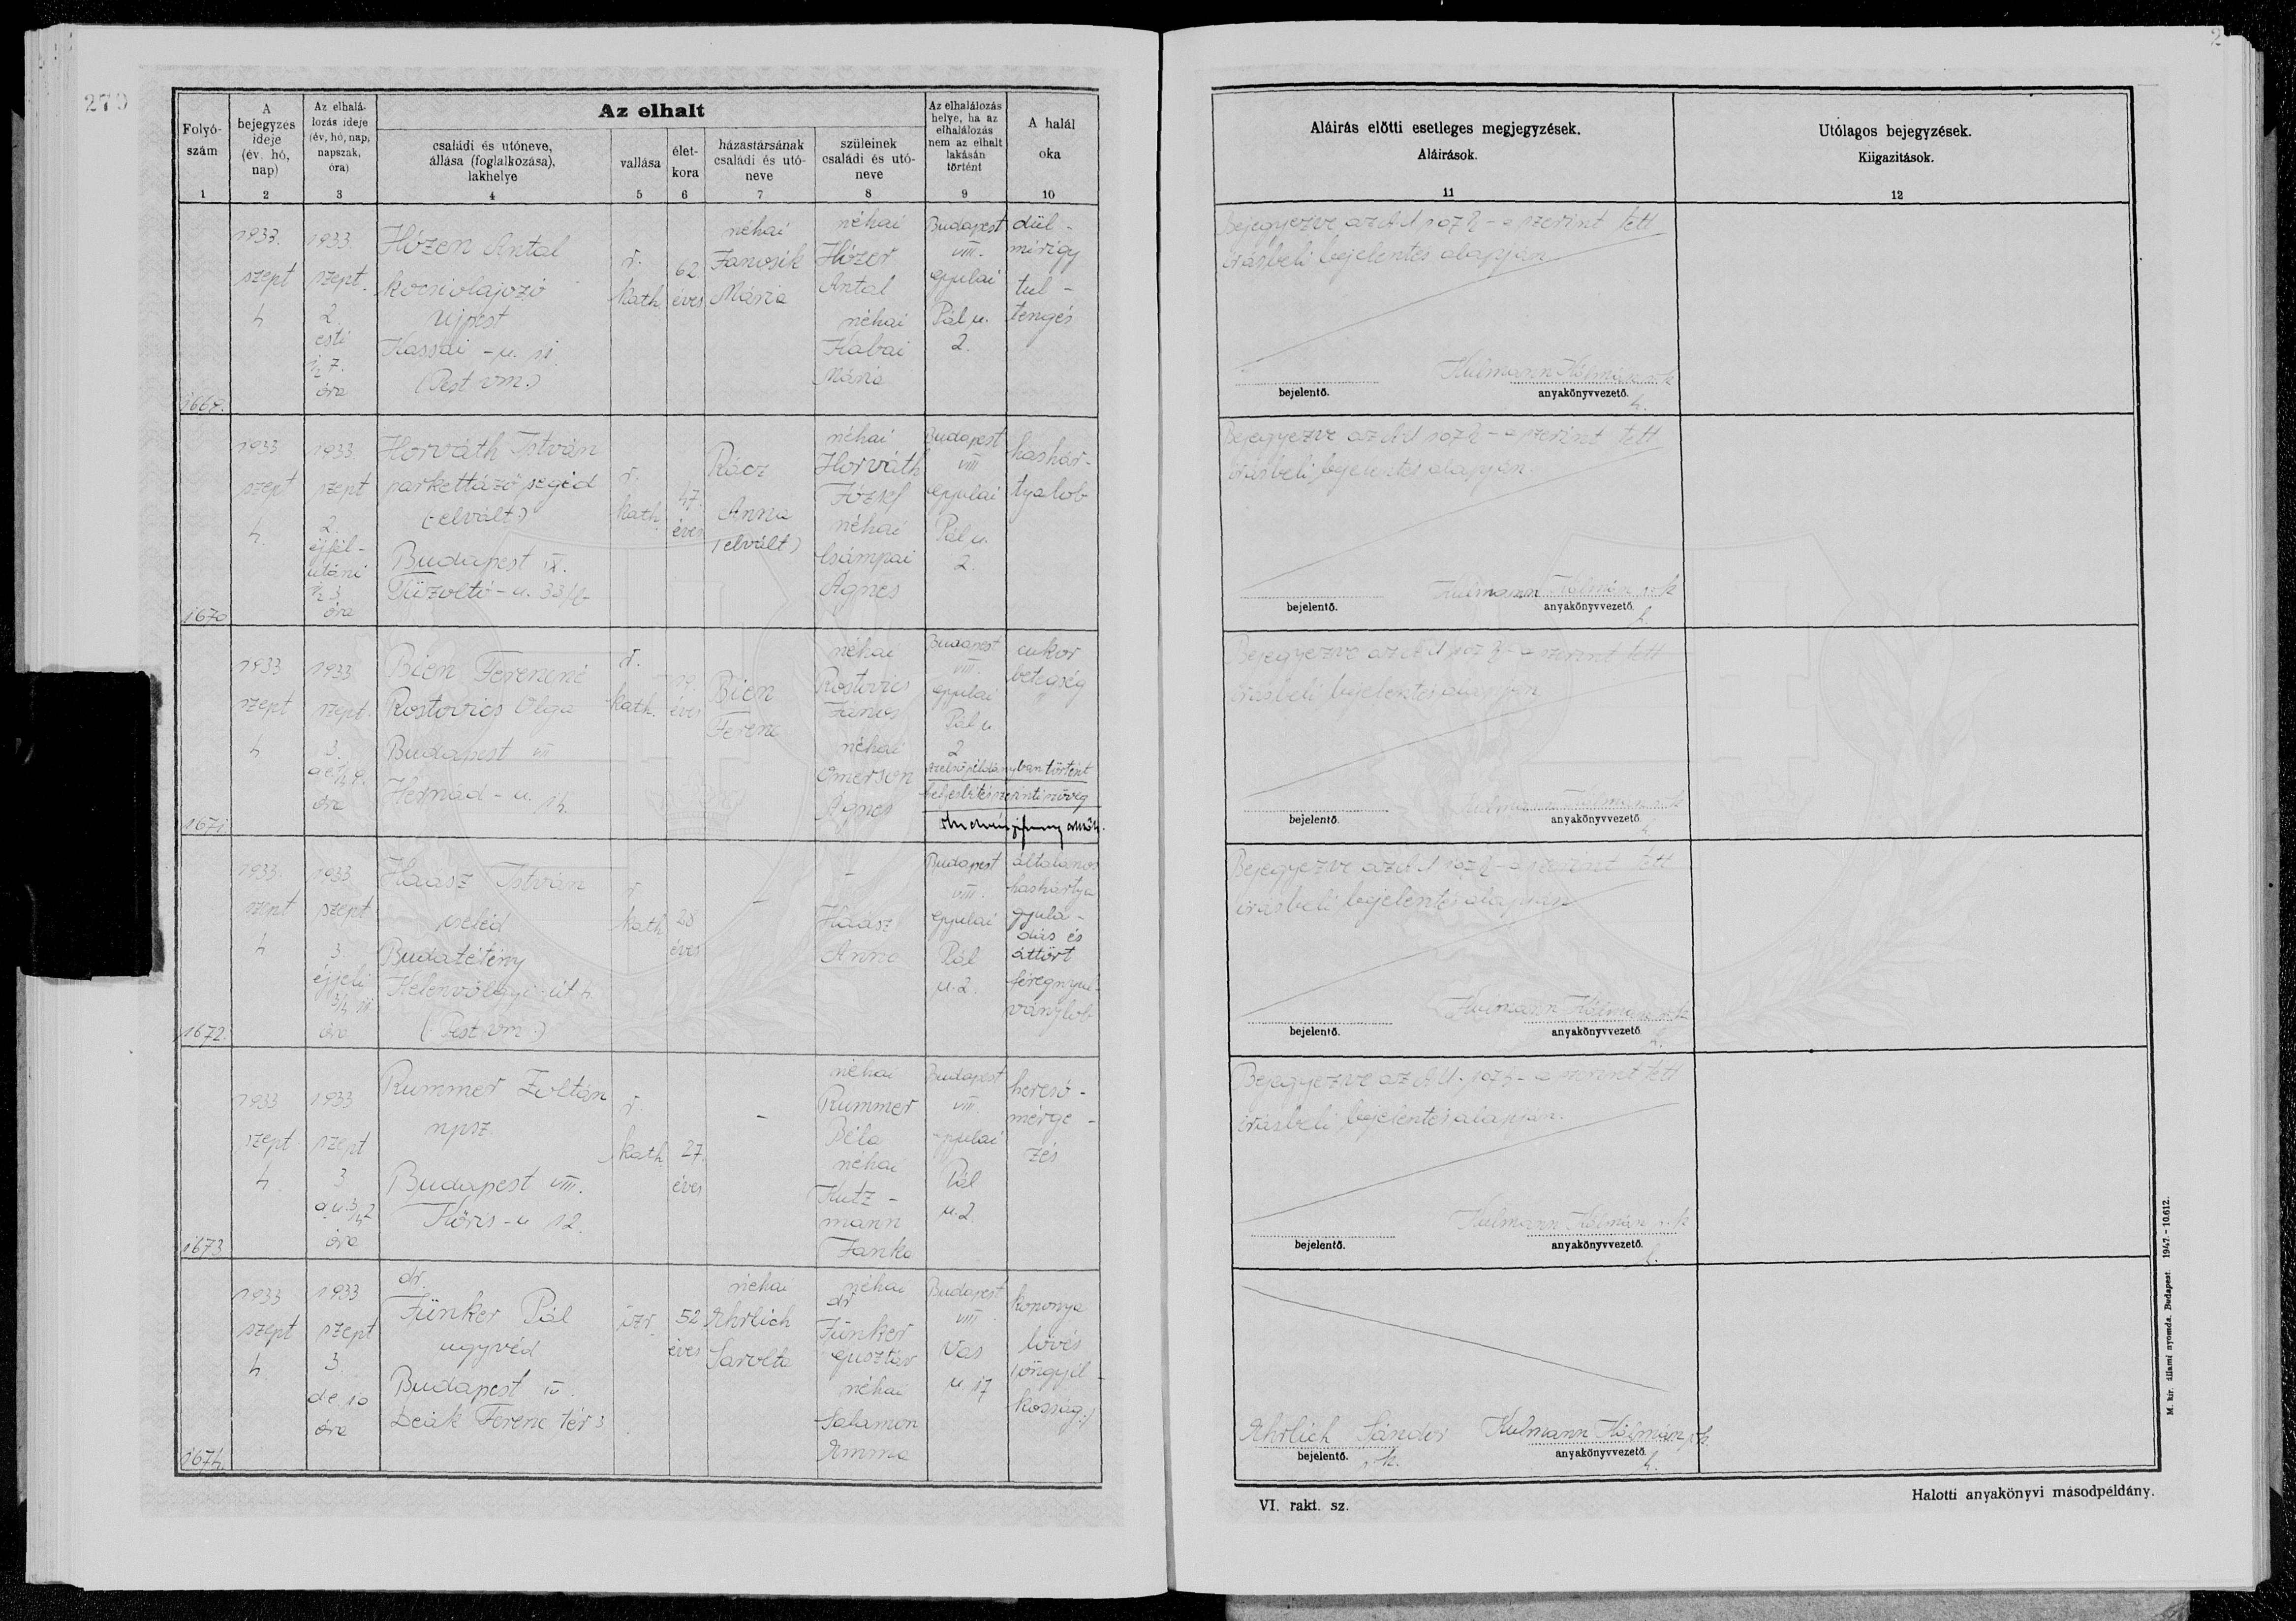 270
2
Folyó-
szám
1
A
bejegyzés
ideje
(év, hó,
nap)
2
Az elhalá-
lozás ideje
(év, hó, nap,
napszak,
óra)
3
Az elhalt
családi és utóneve,
állása (foglalkozása),
lakhelye
4
vallása
5
élet-
kora
6
házastársának
családi és utó-
neve
7
szüleinek
családi és utó-
neve
8
Az elhalálozás
helye, ha az
elhalálozás
nem az elhalt
lakásán
történt
9
A halál
oka
10
Aláírás előtti esetleges megjegyzések.
Aláírások.
11
Utólagos bejegyzések.
Kiigazitások.
12
1669.
1933.
szept
4
1933.
szept.
2.
esti
½ 7.
óra
Hózer Antal
kocsiolajozó
Ujpest
Kassai - u.
(Pest vm.)
r.
kath.
62
éves
néhai
Janosik
Mária
néhai
Hózer
Antal
néhai
Kabai
Mária
Budapest
VIII.
Gyulai
Pál u.
2.
dül-
mirigy
tul-
tengés
Bejegyezve az A.U. 107 § - a szerint tett
irásbeli bejelentés alapján
bejelentő.
Kulmann Kálmán s. k.
anyakönyvvezető.
h.
1670
1933
szept
4.
1933
szept
2.
éjfél-
utáni
½ 3
óra
Horváth István
parkettázó segéd
(elvált)
Budapest IX.
Tüzoltó - u. 33/
r.
kath.
47.
éves
Rácz
Anna
(elvált)
néhai
Horváth
József
néhai
Csámpai
Ágnes
Budapest
VIII
Gyulai
Pál u.
2.
hashár-
tyalob
Bejegyezve az A.U. 107 § - a szerint tett
irásbeli bejelentés alapján.
bejelentő.
Kulmann Kálmán s. k.
anyakönyvvezető.
h.
1671
1933
szept
4
1933
szept.
3.
óra
Bien Ferencné
Rostovics Olga
Budapest VII
Hernád - u.
r.
kath.
éves
Bien
Ferenc
néhai
Rostovics
János
néhai
Omerson
Ágnes
Budapest
VIII.
Gyulai
Pál u
2
cukor
betegség
az első példányban történt
szerinti szöveg
Bejegyezve az A.U. 107 § - a szerint tett
irásbeli bejelentés alapján
bejelentő.
Kulmann Kálmán s. k.
anyakönyvvezető.
h.
1672.
1933.
szept
4
1933
szept
3
éjjeli
óra
Haász István
cseléd
Budatétény
út
(Pest vm.)
r.
kath
28
éves
-
-
Haász
Anna
Budapest
VIII.
Gyulai
Pál
u. 2.
általános
hashártya
gyula-
dás és
áttört
féregnyul-
ványlob
Bejegyezve az A.U. 107 § - a szerint tett
irásbeli bejelentés alapján
bejelentő.
Kulmann Kálmán s. k.
anyakönyvvezető.
h.
1673
1933
szept.
4.
1933
szept
3
d.u. ¾ 2
óra
Rummer Zoltán
npsz.
Budapest VIII.
Kőris - u 12.
r.
kath
27.
éves
-
néhai
Rummer
Béla
néhai
Kutz-
mann
Janka
Budapest
VIII.
Gyulai
Pál
u. 2.
mérge-
zés
Bejegyezve az A.U. 107 § - a szerint tett
irásbeli bejelentés alapján.
bejelentő.
Kulmann Kálmán s. k.
anyakönyvvezető.
h.
1674.
1933
szept
4.
1933
szept
3
de 10
óra
dr.
Jünker Pál
ügyvéd
Budapest IV.
Deák Ferenc tér 3
izr.
52
éves
néhai
Ehrlich
Sarolta
néhai
dr
Jünker
Gusztáv
néhai
Salamon
Emma
Budapest
VIII.
Vas
u 17
koponya
lövés
(öngyil-
kosság)
Ehrlich Sándor
bejelentő.
s. k.
Kulmann Kálmán s. k.
anyakönyvvezető.
h.
VI. rakt. sz.
Halotti anyakönyvi másodpéldány.
M. kir. állami nyomda. Budapest. 1947. - 10.612.